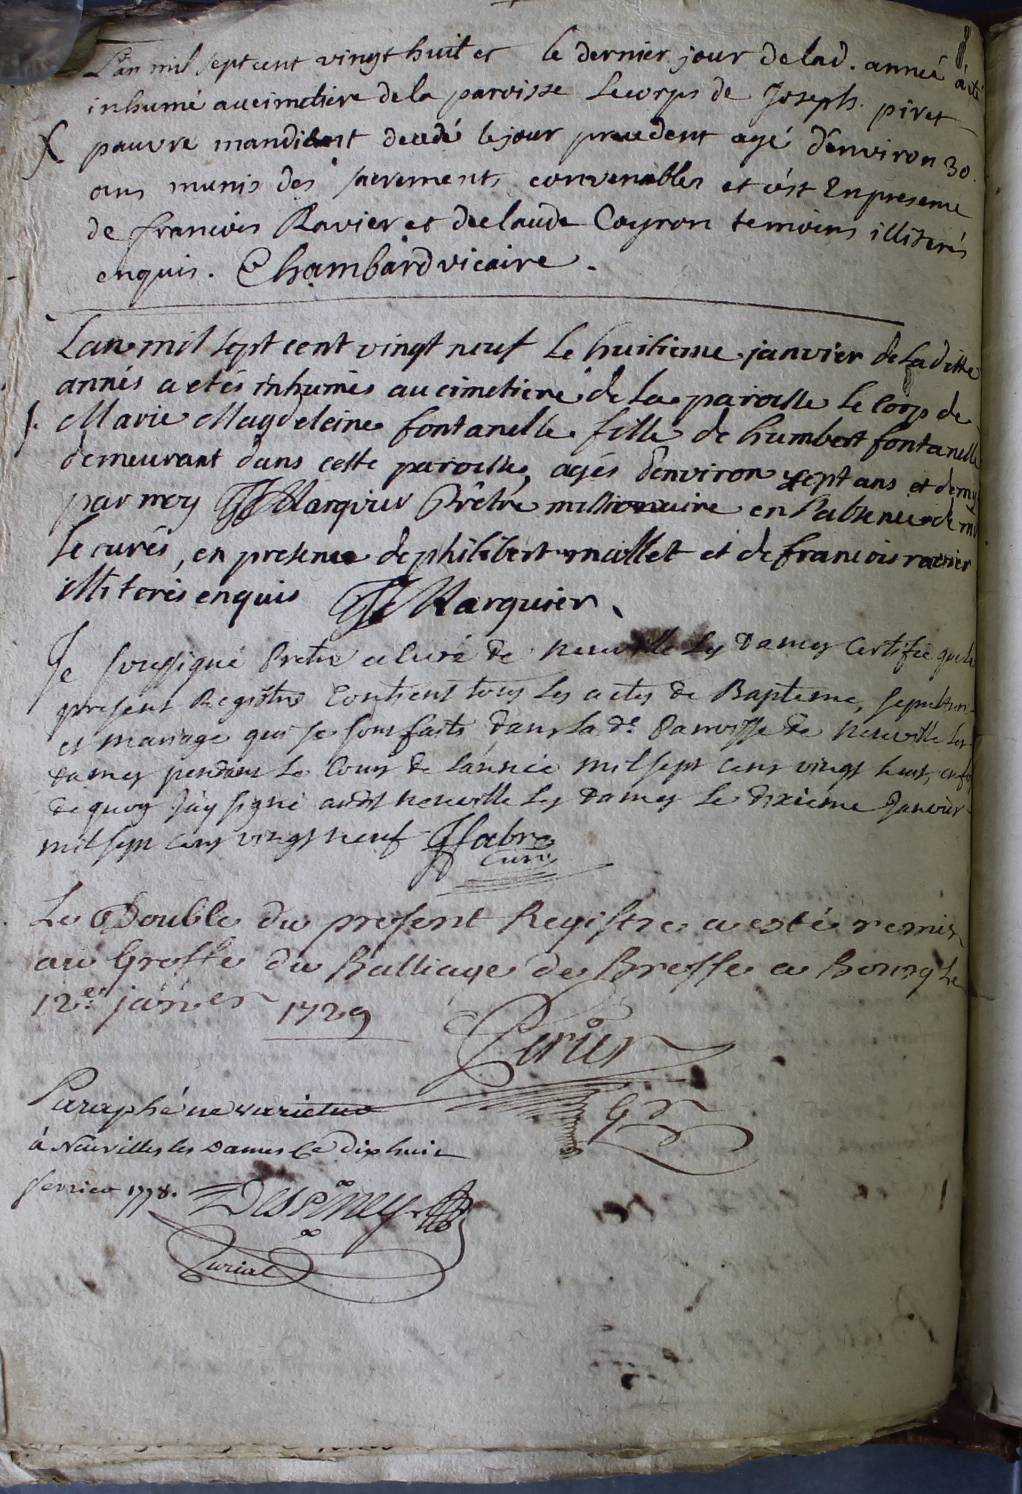 L'an mil sept cent vingt huit et le dernier jour de lad. année à été
inhumé au cimetiere de la paroisse Le corps de Joseph piret
pauvre mandiant decedé le jour precedent agé d'environ 30
ans munis des sacrements convenables et c'est En presence
de francois Ravier et de claude Coyron temoins illiterés
enquis. Chambard vicaire.
Lan mil sept cent vingt neuf Le huitieme janvier de Laditte
annés a etés inhumés au cimetiere de la paroisse Le Corp de
Marie Magdeleine fontanelle fille de humbert fontanelle
demeurant dans cette paroisse, agés denviron sept ans et demy
par moy Harquier Prêtre missionnaire en l'absence de mr
Le curés, en presence de philibert maillet et de francois ravier
illiterés enquis Harquier
Je soussigné Pretre et Curé de Neuville Les Dames Certifie que le
present Registre Contient tous Les actes de Bapteme, sepulture
et mariage qui se sont faits dans La de. Parroisse de Neuville Les
Dames pendant Le Cours de Lannée mil sept cens vingt huit, en foy
de quoy J'ay signé audit Neuville Les Dames Le dixieme Janvier
mil sept cens vingt neuf Fabre
Curé
Le Double du present Registre a esté remis
au Greffe du Balliage de Bresse a Bourg Le
12e. janvier 1729
Perier
Gr
Paraphé ne varietur
à Neuville les Dames Ce dix huit
fevrier 1778.
Curial